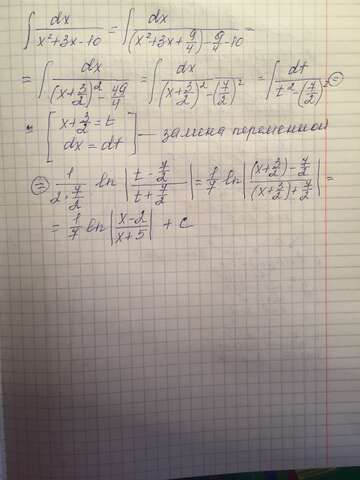 ∫ dx/(x²+3x-10) = ∫ dx/((x²+3x+9/4)-9/4-10) =
= ∫ dx/((x+3/2)²-49/4) = ∫ dx/((x+3/2)²-(7/2)²) = ∫ dt/(t²-(7/2)²) ⊜
= [x+3/2=t
dx=dt] — замена переменной
⊜ 1/(2·7/2) ln |(t-7/2)/(t+7/2)| = 1/7 ln |((x+3/2)-7/2)/((x+3/2)+7/2)| =
= 1/7 ln |(x-2)/(x+5)| + c